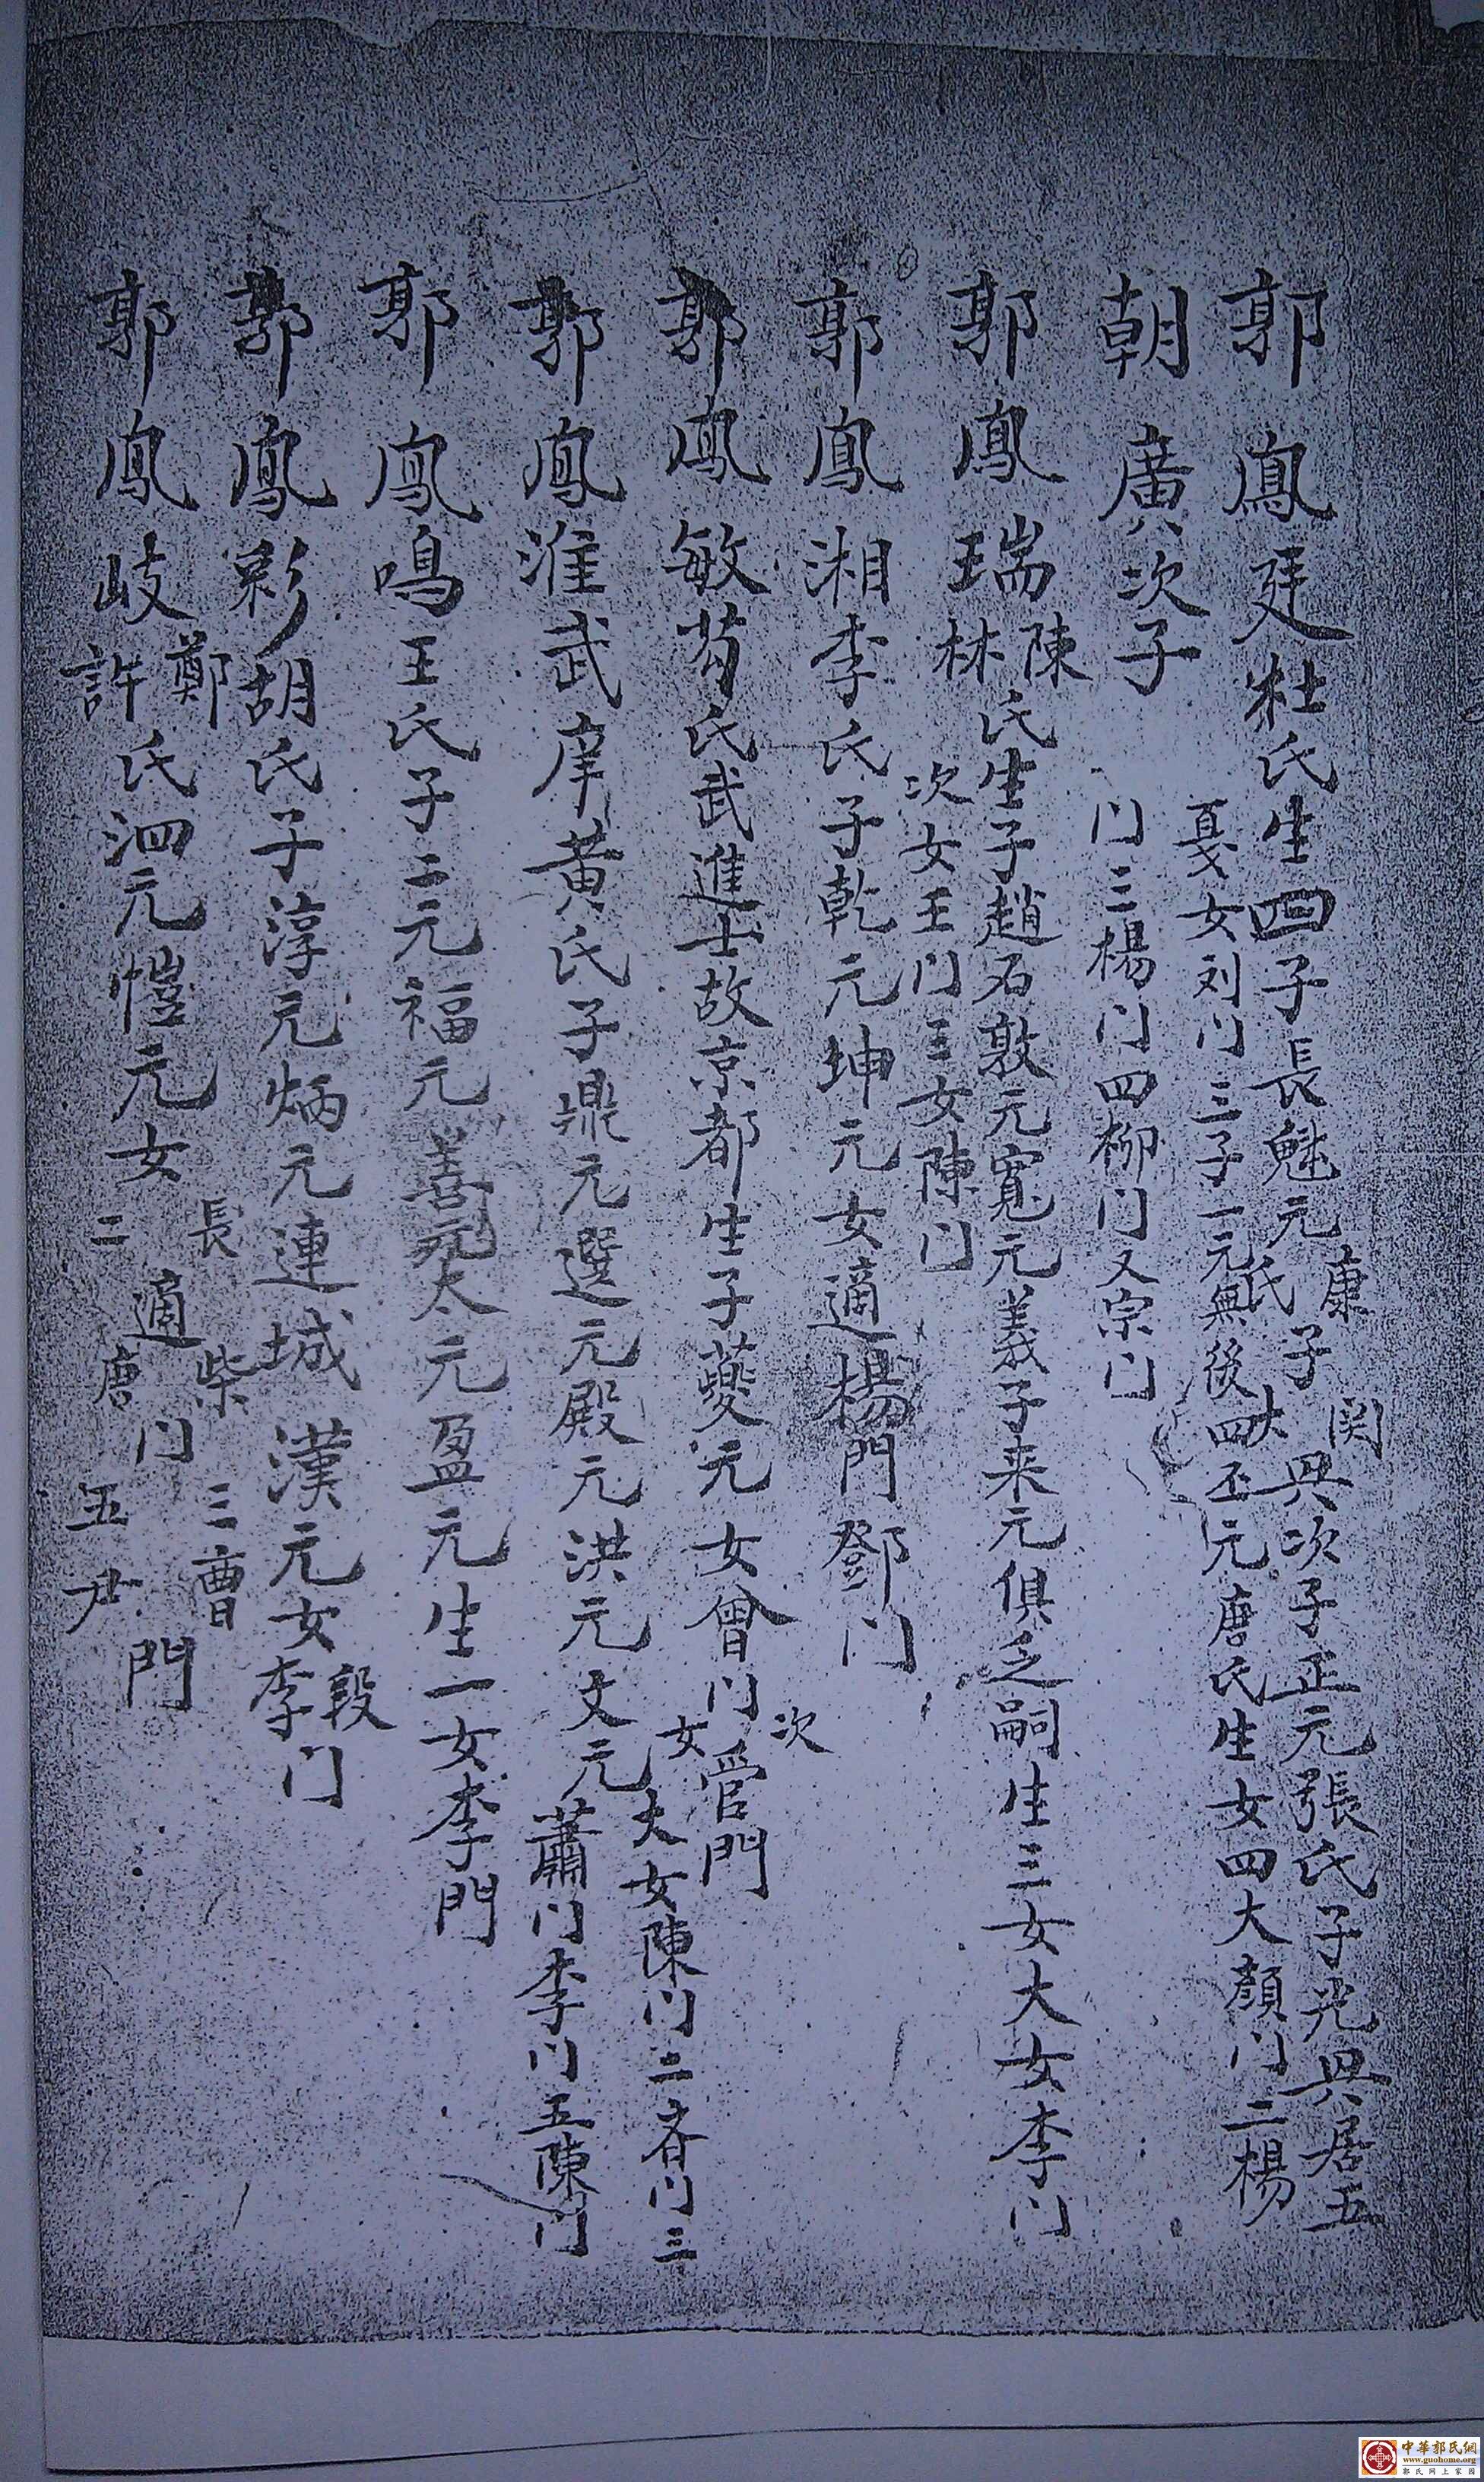 郭鳳廷杜氏生四子長魁元康氏子大興関次子正元張氏子光興居五
戛女刘门三子一元無後四丕元唐氏生女四大顏门二楊
朝廣次子
门三楊门四柳门又宗门
郭鳳瑞陳林氏生子趙石敦元寬元義子来元俱乏嗣生三女大女李门
次女王门三女陳门
郭鳳湘李氏子乾元坤元女適楊門鄧门
郭鳳敏芶氏武進士故京都生子夔元女曾门次女管門
郭鳳淮武庠黃氏子鼎元選元殿元洪元文元大女陳门二斉门三
蕭门李门五陳门
郭鳳鳴王氏子二元福元善元太元盈元生一女李門
郭鳳彩胡氏子淳元炳元連城漢元女段李门
郭鳳岐鄭許氏泗元愷元女長二適柴唐门三曹五尹門
中華郭氏網
www.guohome.org
郭氏网上家园